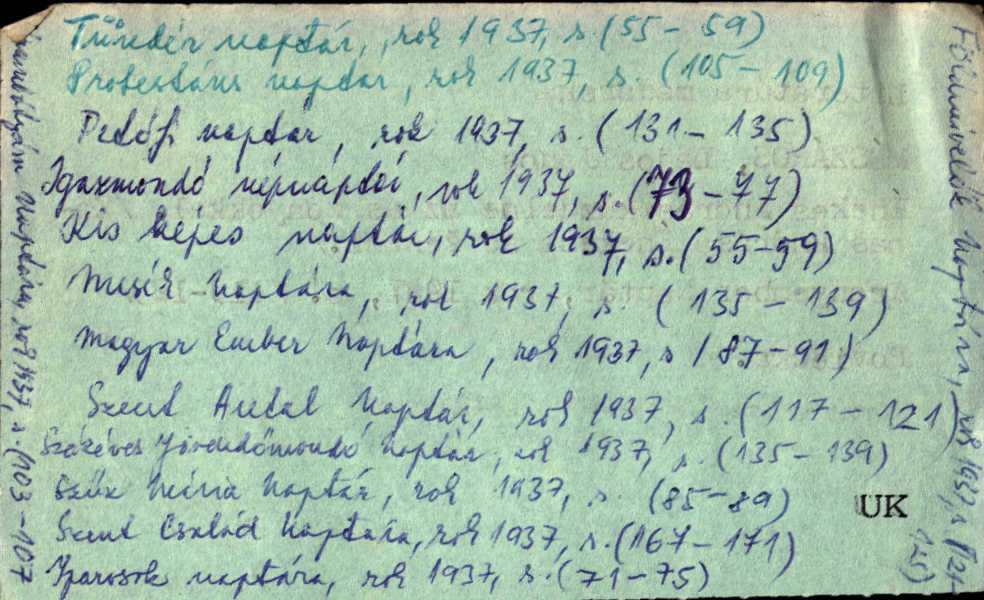 Tündér naptár, rok 1937, s. (55-59)
Protestáns naptár, rok 1937, s. (105-109)
Petőfi naptár, rok 1937, s. (131-135)
Igazmondó népnaptár, rok 1937, s. (73-77)
Kis képes naptár, rok 1937, s. (55-59)
Mesék Naptára, rok 1937, s. (135-139)
Magyar Ember Naptára, rok 1937, s (87-91)
Szent Antal Naptár, rok 1937, s. (117-121)
Százéves Jövendőmondó Naptár, rok 1937, s. (135-139)
Szűz Mária Naptár, rok 1937, s. (85-89)
UK
Szent Család Naptára, rok 1937, s. (167-171)
Iparosok naptára, rok 1937, s. (71-75)
Naptára, rok 1937, s. (103-107
Földművelők Naptára, rok 1937, s (121-125)